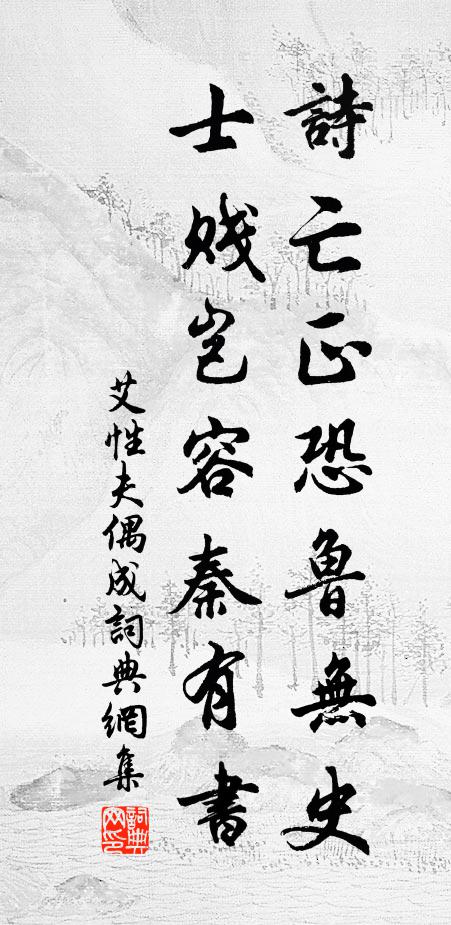 詩亡正恐魯無史
士賤豈容秦有書
艾性夫偶成詞典網集
詞典網印